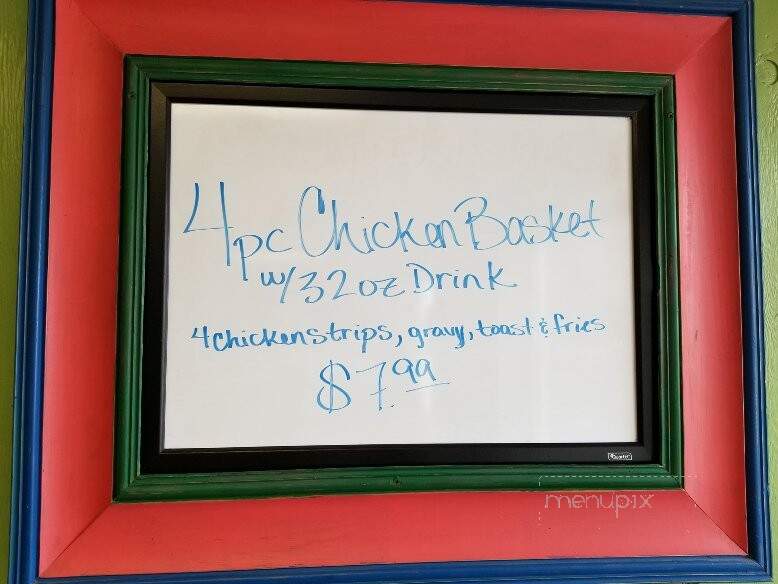 4pc Chicken Basket
w/32oz Drink
4 chicken strips, gravy, toast & fries
$7.99
Quartet
menupix